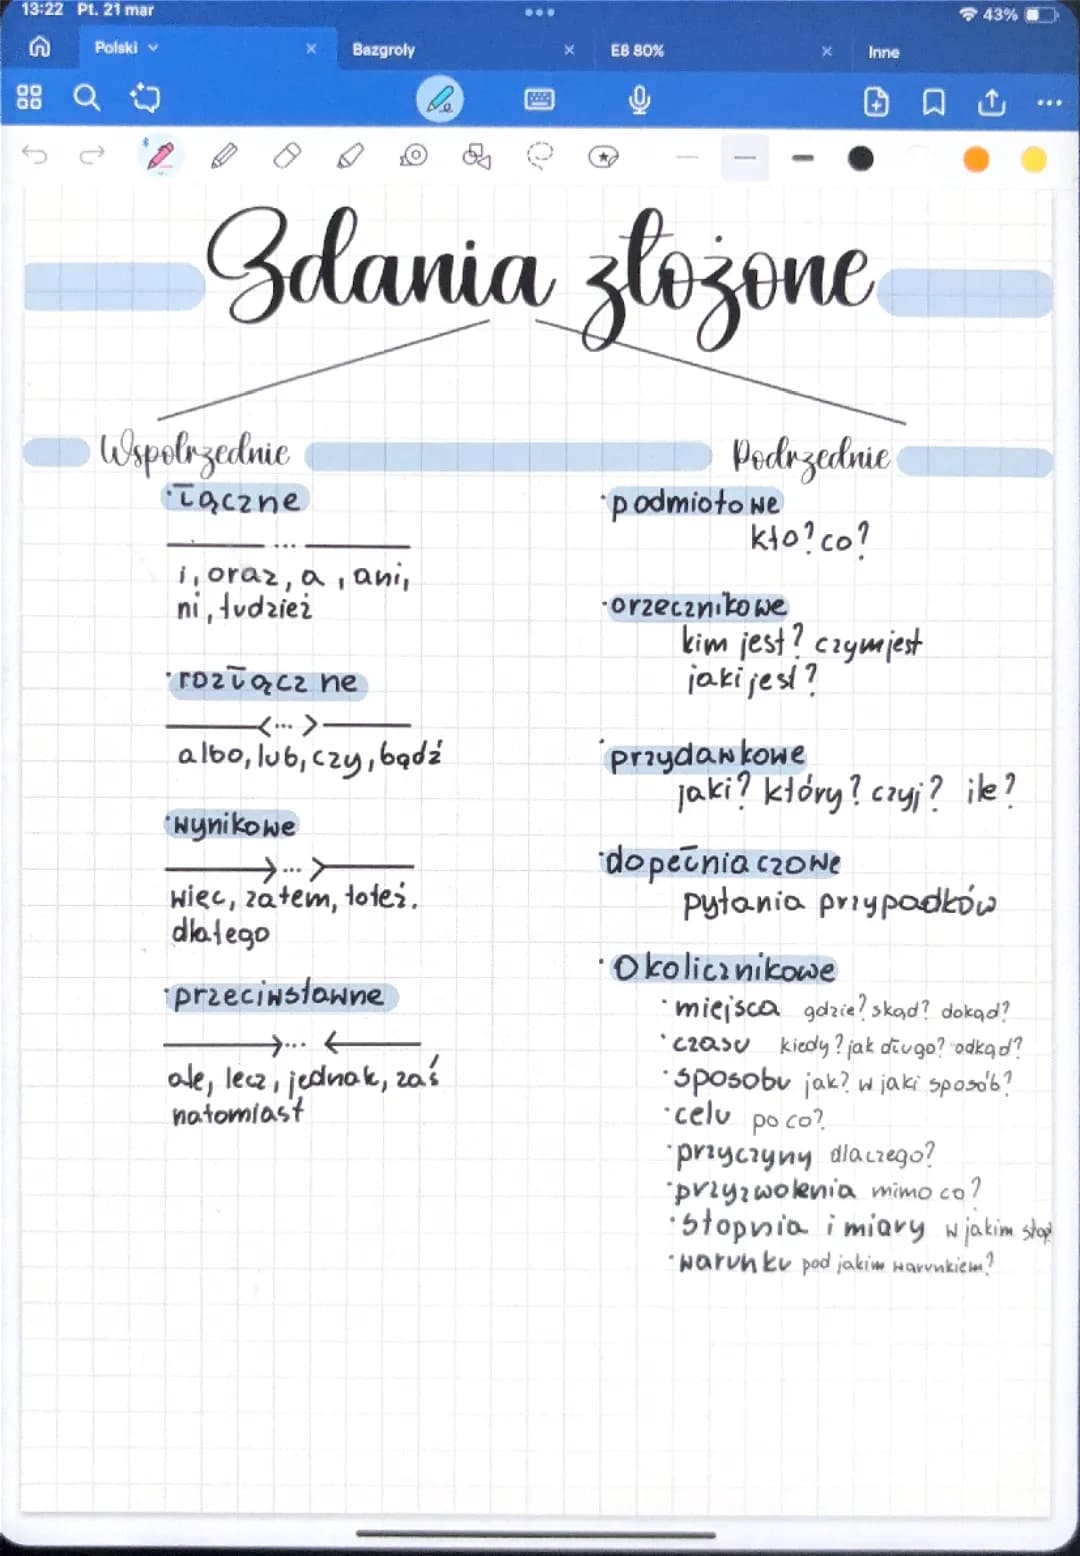 13:22 Pt. 21 mar
43%
Polski
Bazgroły
E8 80%
Inne
Zdania złożone
Współrzędnie
Podrzędnie
·Łączne
...
i, oraz, a, ani,
ni, tudzież
·rozłączne
<...>
albo, lub, czy, bądź
·wynikowe
→...>
więc, zatem, toteż.
dlatego
·przeciwstawne
→...←
ale, lecz, jednak, zaś
natomiast
·podmiotowe
kto? co?
·orzecznikowe
kim jest? czym jest
jaki jest?
·przydawkowe
jaki? który? czyj? ile?
·dopełniaczowe
pytania przypadków
·Okolicznikowe
·miejsca gdzie? skąd? dokąd?
·czasu kiedy? jak długo? odkąd?
·sposobu jak? w jaki sposób?
·celu po co?
·przyczyny dlaczego?
·przyzwolenia mimo co?
·stopnia i miary w jakim stop
·warunku pod jakim warunkiem?